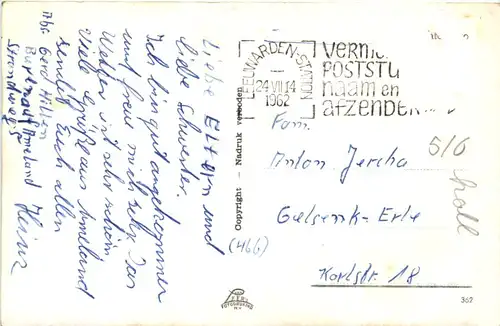 Liebe Eltern und
liebe Schwester.
Ich bin gut angekommen
und freue mich sehr. Das
Wetter ist sehr schön
Viele Grüße aus Ameland
sendet Euch allen
Heinz
Abs. Gerd Hillen
Ameland
(466)
Copyright - Nadruk verboden
LEEUWARDEN-STATION
24 VII 14
1962
VERMEL
POSTSTU
naam en
afzender
Fam.
Anton Jercha
5/6
Holl
Gelsenk-Erle
Karlstr. 18
362